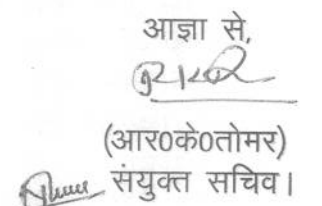 आज्ञा से,
(आर0के0तोमर)
संयुक्त सचिव।